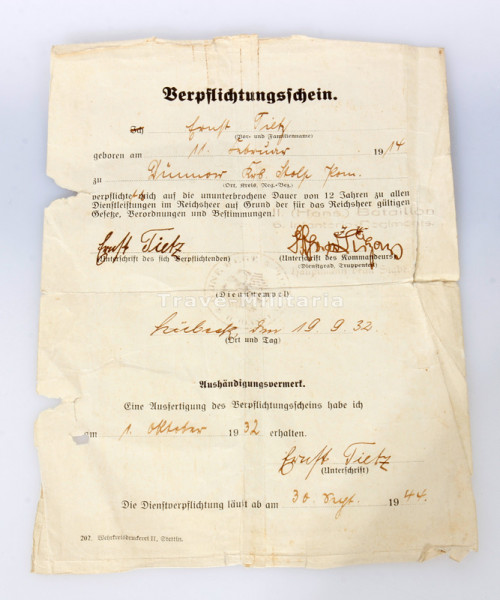 Verpflichtungsschein.
Ich Ernst Tietz
(Vor- und Familienname)
geboren am 11. Februar 1914.
zu Dünnow Krs Stolp Pom.
(Ort, Kreis, Reg.-Bez.)
verpflichtete sich auf die ununterbrochene Dauer von 12 Jahren zu allen
Dienstleistungen im Reichsheer auf Grund der für das Reichsheer gültigen
Gesetze, Verordnungen und Bestimmungen.
II (Hans.) Bataillon
6. Infanterie-Regiments
Ernst Tietz
(Unterschrift des sich Verpflichtenden) (Unterschrift des Kommandeurs)
(Dienstgrad, Truppenteil)
(Dienstsiegel)
Trave-Militaria
Lübeck, den 19.9.32.
(Ort und Tag)
Aushändigungsvermerk.
Eine Ausfertigung des Verpflichtungsscheins habe ich
am 1. Oktober 1932 erhalten.
Ernst Tietz
(Unterschrift)
Die Dienstverpflichtung läuft ab am 30. Sept. 1944.
207. Wehrkreisdruckerei II, Stettin.